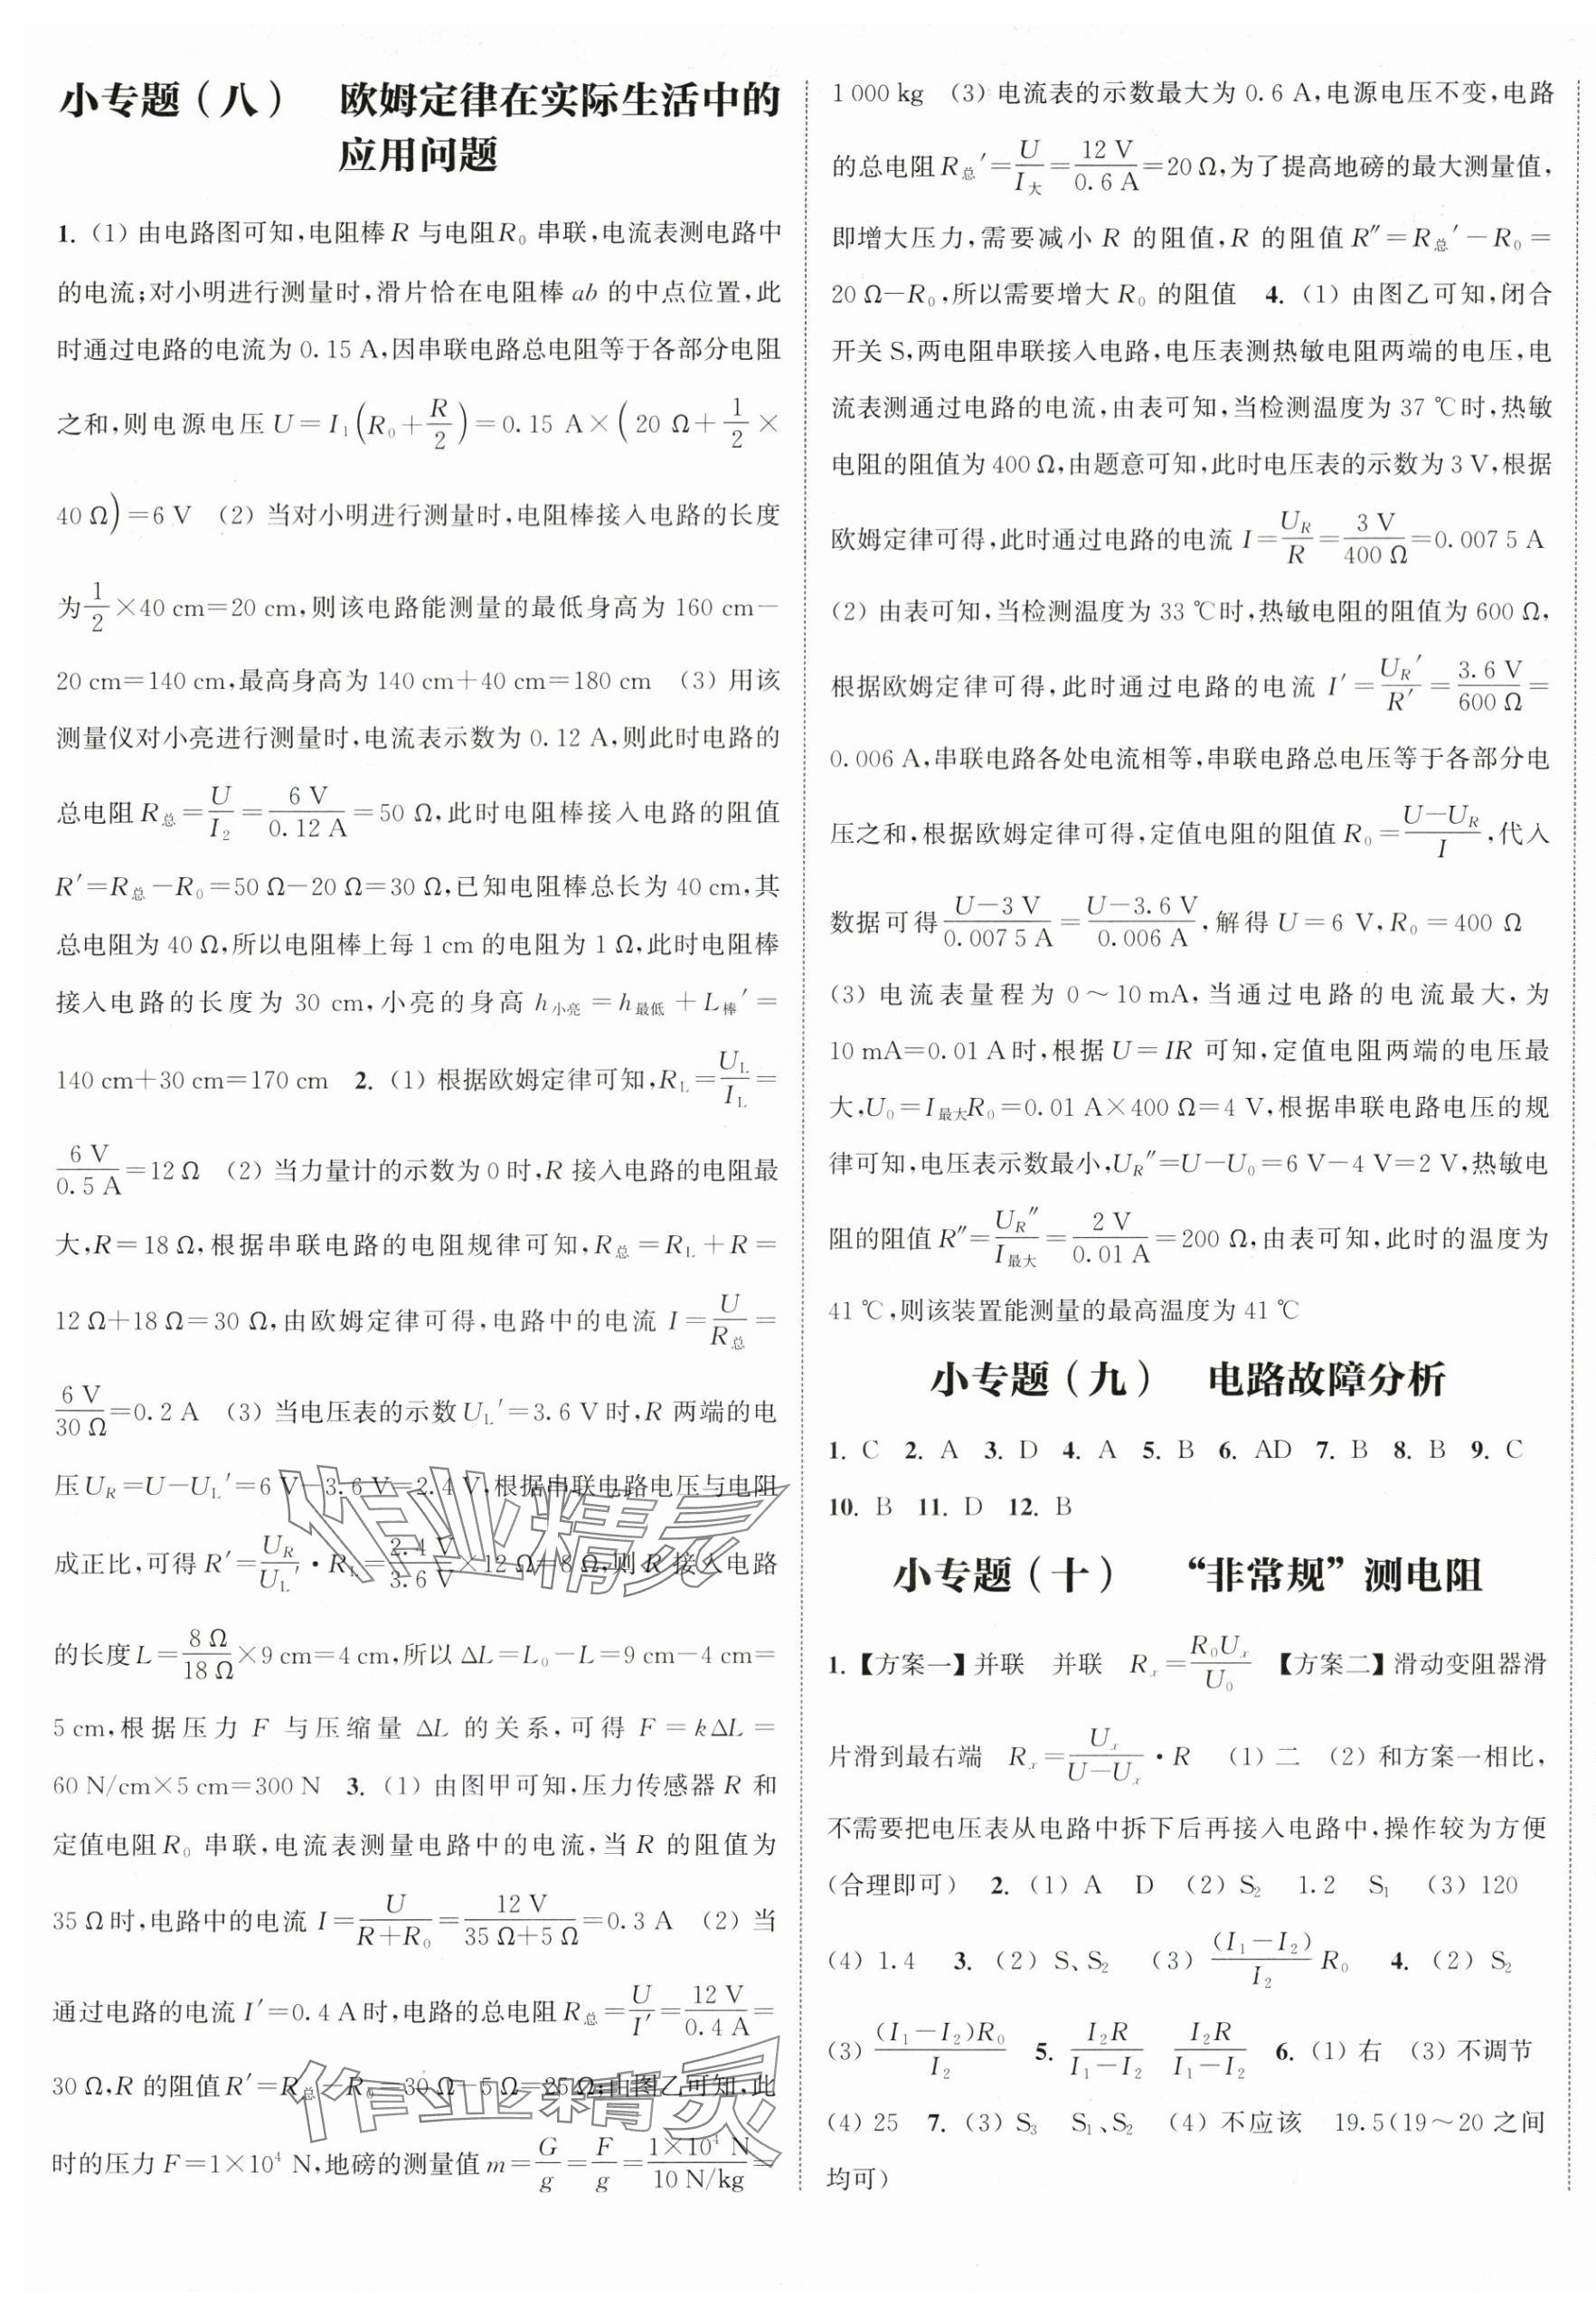 小专题(八) 欧姆定律在实际生活中的
应用问题
1. (1) 由电路图可知,电阻棒 R 与电阻 R₀ 串联,电流表测电路中
的电流;对小明进行测量时,滑片恰在电阻棒 ab 的中点位置,此
时通过电路的电流为 0.15 A,因串联电路总电阻等于各部分电阻
之和,则电源电压 U=I₁(R₀+R/2)=0.15 A×(20 Ω+1/2×
40 Ω)=6 V (2) 当对小明进行测量时,电阻棒接入电路的长度
为1/2×40 cm=20 cm,则该电路能测量的最低身高为 160 cm-
20 cm=140 cm,最高身高为 140 cm+40 cm=180 cm (3) 用该
测量仪对小亮进行测量时,电流表示数为 0.12 A,则此时电路的
总电阻 R总=U/I₂=6 V/0.12 A=50 Ω,此时电阻棒接入电路的阻值
R′=R总-R₀=50 Ω-20 Ω=30 Ω,已知电阻棒总长为 40 cm,其
总电阻为 40 Ω,所以电阻棒上每 1 cm 的电阻为 1 Ω,此时电阻棒
接入电路的长度为 30 cm,小亮的身高 h小亮=h最低+L棒′=
140 cm+30 cm=170 cm 2. (1) 根据欧姆定律可知,R_L=U_L/I_L=
6 V/0.5 A=12 Ω (2) 当力量计的示数为 0 时,R 接入电路的电阻最
大,R=18 Ω,根据串联电路的电阻规律可知,R总=R_L+R=
12 Ω+18 Ω=30 Ω,由欧姆定律可得,电路中的电流 I=U/R总=
6 V/30 Ω=0.2 A (3) 当电压表的示数 U_L′=3.6 V 时,R 两端的电
压 U_R=U-U_L′=6 V-3.6 V=2.4 V,根据串联电路电压与电阻
成正比,可得 R′=U_R/U_L′·R_L=2.4 V/3.6 V×12 Ω=8 Ω,则 R 接入电路
的长度 L=8 Ω/18 Ω×9 cm=4 cm,所以 ΔL=L₀-L=9 cm-4 cm=
5 cm,根据压力 F 与压缩量 ΔL 的关系,可得 F=kΔL=
60 N/cm×5 cm=300 N 3. (1) 由图甲可知,压力传感器 R 和
定值电阻 R₀ 串联,电流表测量电路中的电流,当 R 的阻值为
35 Ω 时,电路中的电流 I=U/(R+R₀)=12 V/(35 Ω+5 Ω)=0.3 A (2) 当
通过电路的电流 I′=0.4 A 时,电路的总电阻 R总=U/I′=12 V/0.4 A=
30 Ω,R 的阻值 R′=R总-R₀=30 Ω-5 Ω=25 Ω;由图乙可知,此
时的压力 F=1×10⁴ N,地磅的测量值 m=G/g=F/g=1×10⁴ N/10 N/kg=
1 000 kg (3) 电流表的示数最大为 0.6 A,电源电压不变,电路
的总电阻 R总′=U/I大=12 V/0.6 A=20 Ω,为了提高地磅的最大测量值,
即增大压力,需要减小 R 的阻值,R 的阻值 R″=R总′-R₀=
20 Ω-R₀,所以需要增大 R₀ 的阻值 4. (1) 由图乙可知,闭合
开关 S,两电阻串联接入电路,电压表测热敏电阻两端的电压,电
流表测通过电路的电流,由表可知,当检测温度为 37 ℃时,热敏
电阻的阻值为 400 Ω,由题意可知,此时电压表的示数为 3 V,根据
欧姆定律可得,此时通过电路的电流 I=U_R/R=3 V/400 Ω=0.007 5 A
(2) 由表可知,当检测温度为 33 ℃时,热敏电阻的阻值为 600 Ω,
根据欧姆定律可得,此时通过电路的电流 I′=U_R′/R′=3.6 V/600 Ω=
0.006 A,串联电路各处电流相等,串联电路总电压等于各部分电
压之和,根据欧姆定律可得,定值电阻的阻值 R₀=(U-U_R)/I,代入
数据可得(U-3 V)/0.007 5 A=(U-3.6 V)/0.006 A,解得 U=6 V,R₀=400 Ω
(3) 电流表量程为 0~10 mA,当通过电路的电流最大,为
10 mA=0.01 A 时,根据 U=IR 可知,定值电阻两端的电压最
大,U₀=I最大R₀=0.01 A×400 Ω=4 V,根据串联电路电压的规
律可知,电压表示数最小,U_R″=U-U₀=6 V-4 V=2 V,热敏电
阻的阻值 R″=U_R″/I最大=2 V/0.01 A=200 Ω,由表可知,此时的温度为
41 ℃,则该装置能测量的最高温度为 41 ℃
小专题(九) 电路故障分析
1. C 2. A 3. D 4. A 5. B 6. AD 7. B 8. B 9. C
10. B 11. D 12. B
小专题(十) “非常规”测电阻
1.【方案一】并联 并联 Rₓ=R₀Uₓ/U₀ 【方案二】滑动变阻器滑
片滑到最右端 Rₓ=Uₓ/(U-Uₓ)·R (1) 二 (2) 和方案一相比,
不需要把电压表从电路中拆下后再接入电路中,操作较为方便
(合理即可) 2. (1) A D (2) S₂ 1.2 S₁ (3) 120
(4) 1.4 3. (2) S、S₂ (3) (I₁-I₂)/I₂ R₀ 4. (2) S₂
(3) (I₁-I₂)R₀/I₂ 5. I₂R/(I₁-I₂) I₂R/(I₁-I₂) 6. (1) 右 (3) 不调节
(4) 25 7. (3) S₃ S₁、S₂ (4) 不应该 19.5(19~20 之间
均可)
作业精灵
作业精灵